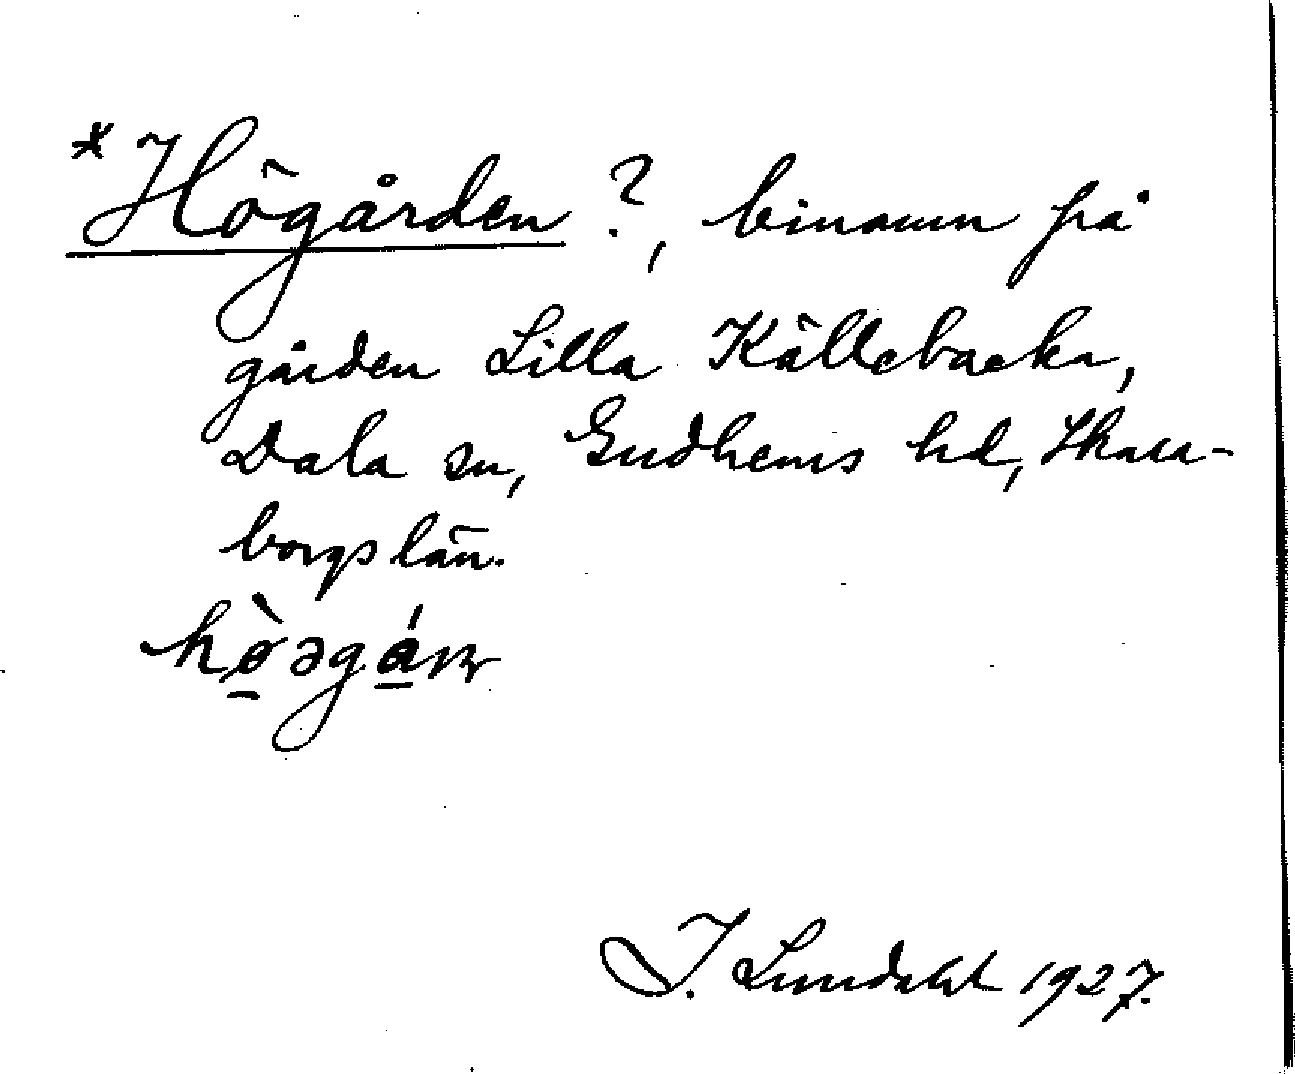 *Högården ?, binamn på
gården Lilla Källebacka,
Dala sn, Gudhems hd, Skara-
borgs län.
I. Lundahl 1927.